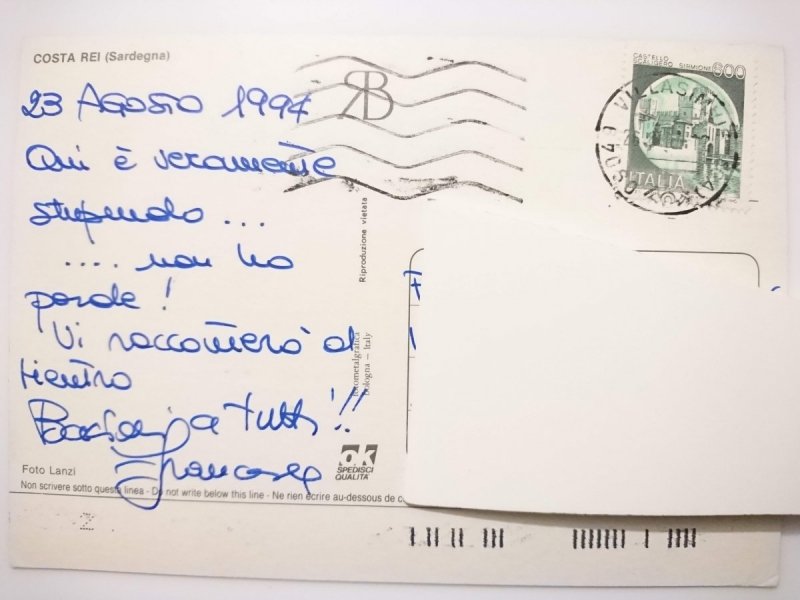 COSTA REI (Sardegna)
CASTELLO
SCALIGERO SIRMIONE 600
ITALIA
VILLASIMIUS
09049
23 AGOSTO 1997
Qui è veramente
stupendo ...
.... non ho
parole!
Vi racconterò al
rientro
Baci a tutti!!
Francesca
Riproduzione vietata
fotometalgrafica
bologna — Italy
ok
SPEDISCI
QUALITA'
Foto Lanzi
Non scrivere sotto questa linea - Do not write below this line - Ne rien écrire au-dessous de